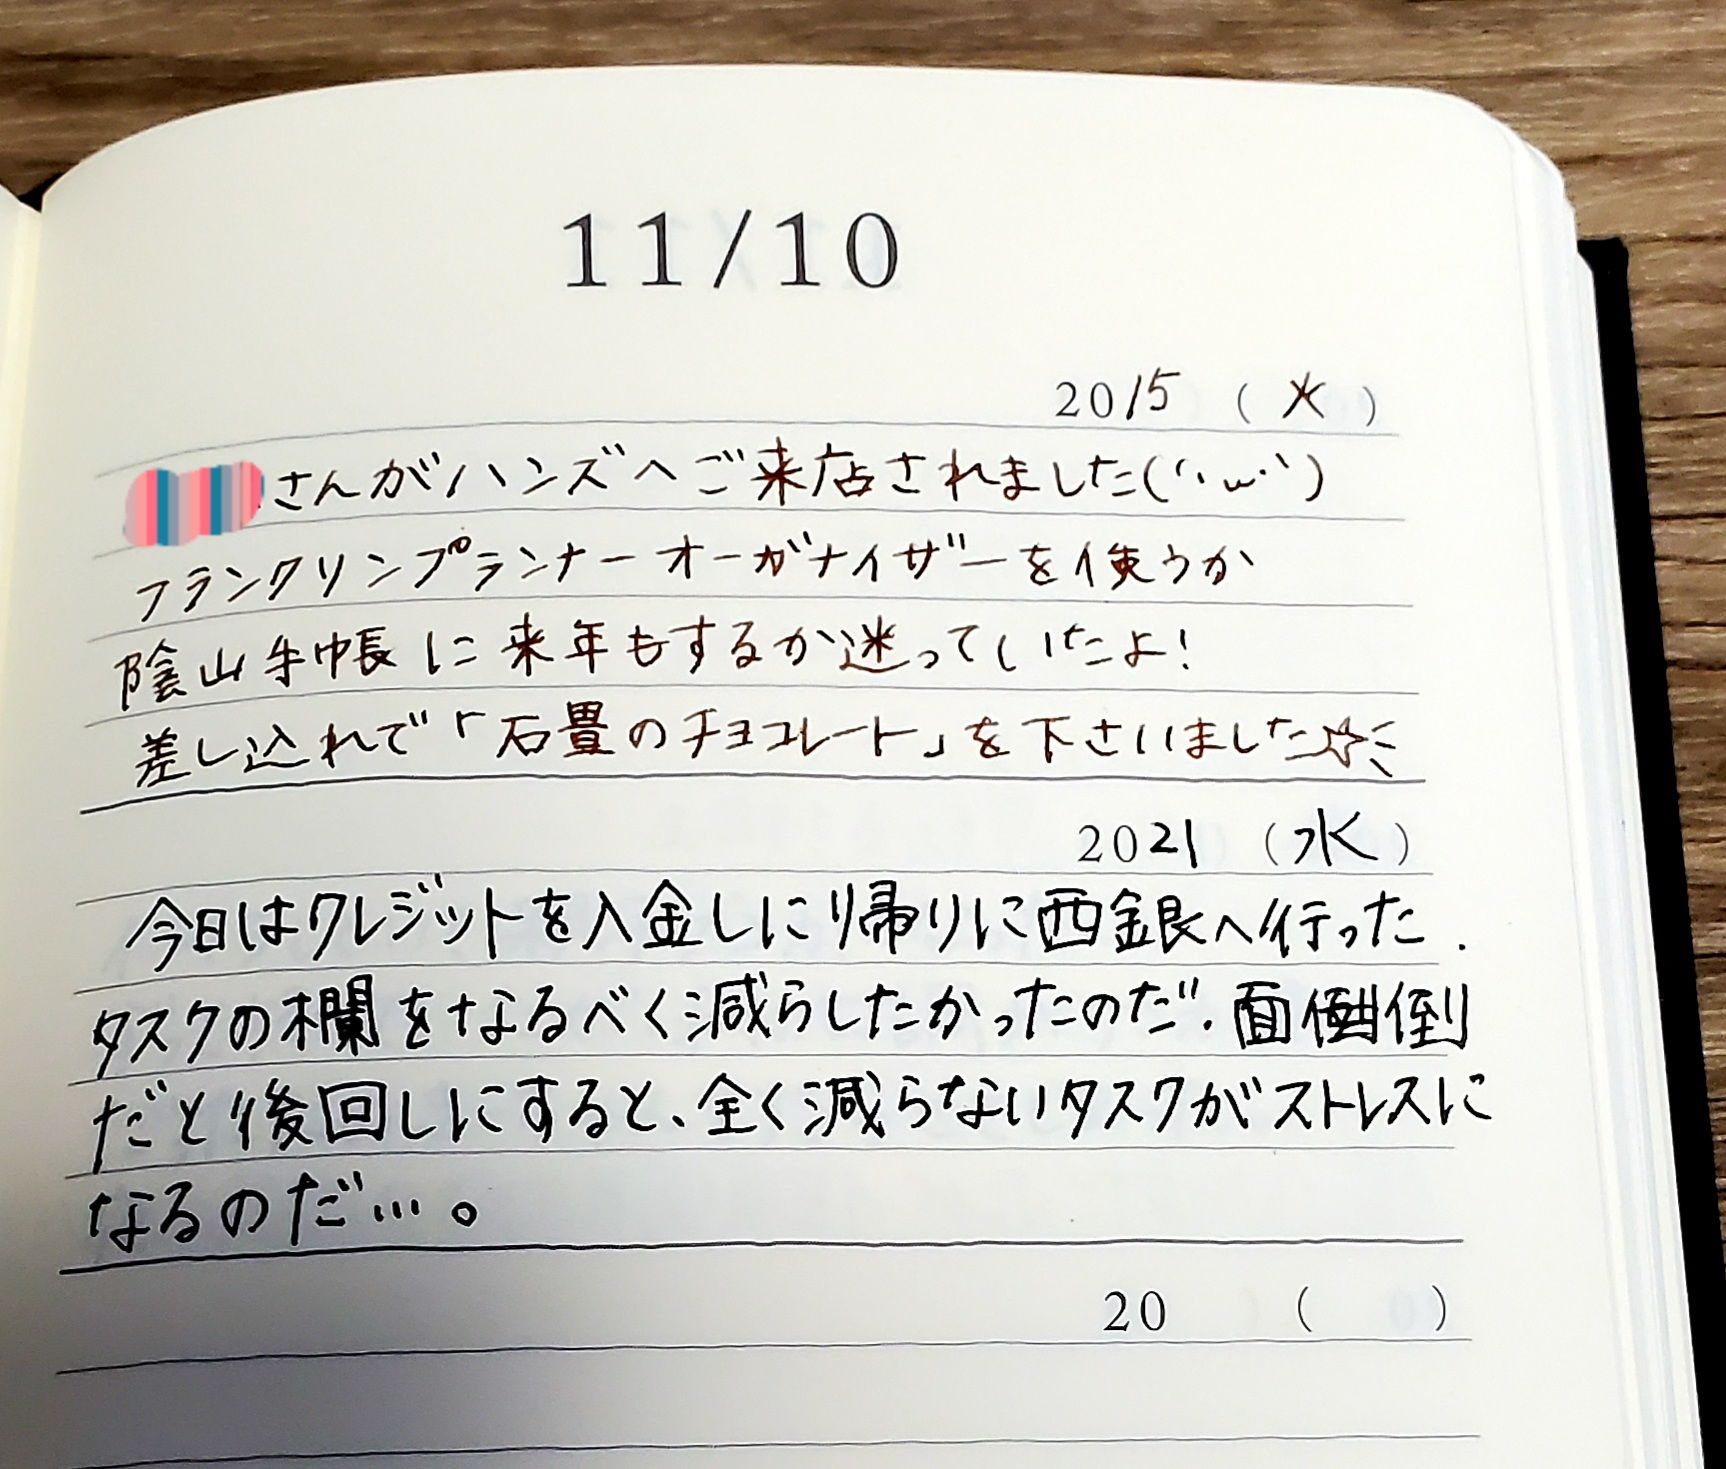 11/10
2015 (火)
さんがハンズへご来店されました(´・ω・`)
フランクリンプランナーオーガナイザーを使うか
陰山手帳に来年もするか迷っていたよ!
差し込れで「石畳のチョコレート」を下さいました☆
2021 (水)
今日はクレジットを入金しに帰りに西銀へ行った.
タスクの欄をなるべく減らしたかったのだ.面倒
だと後回しにすると、全く減らないタスクがストレスに
なるのだ…。
20 ( )